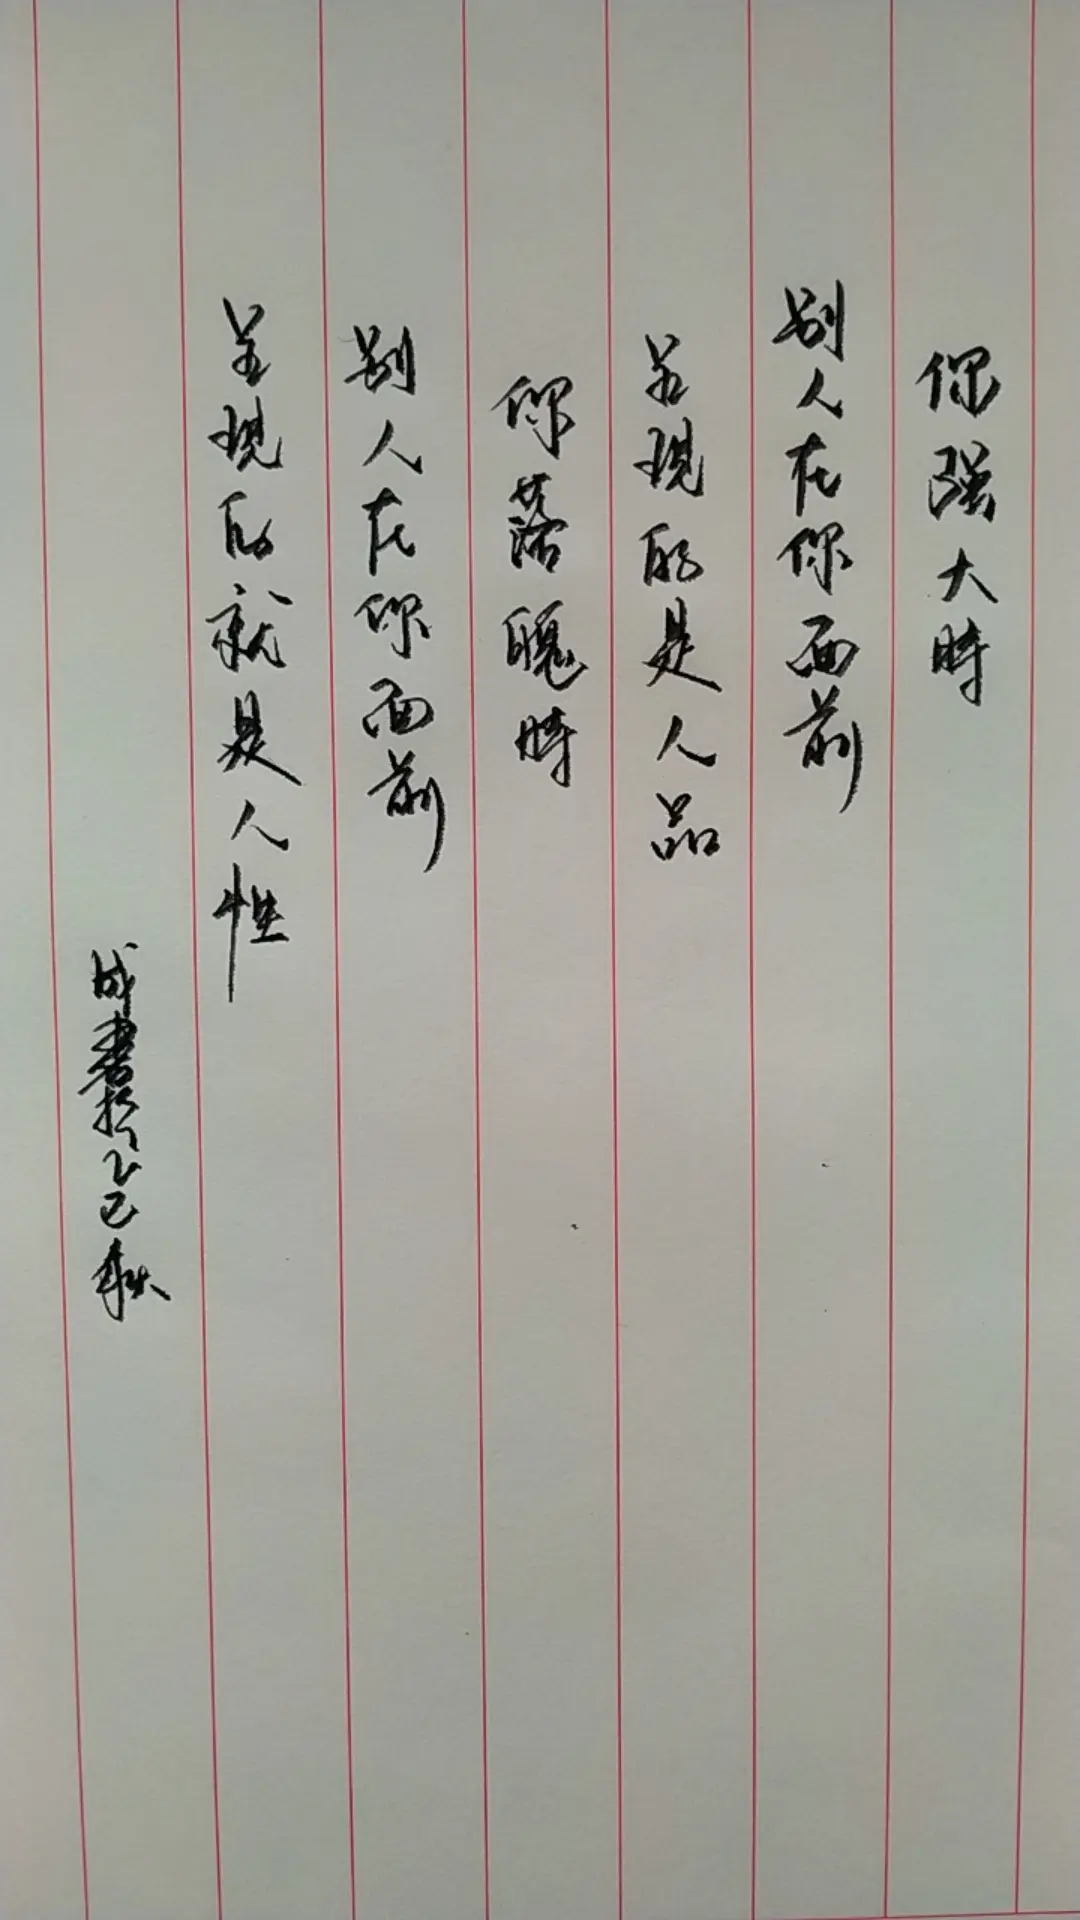 你强大时
别人在你面前
呈现的是人品
你落魄时
别人在你面前
呈现的就是人性
成書於乙巳秋